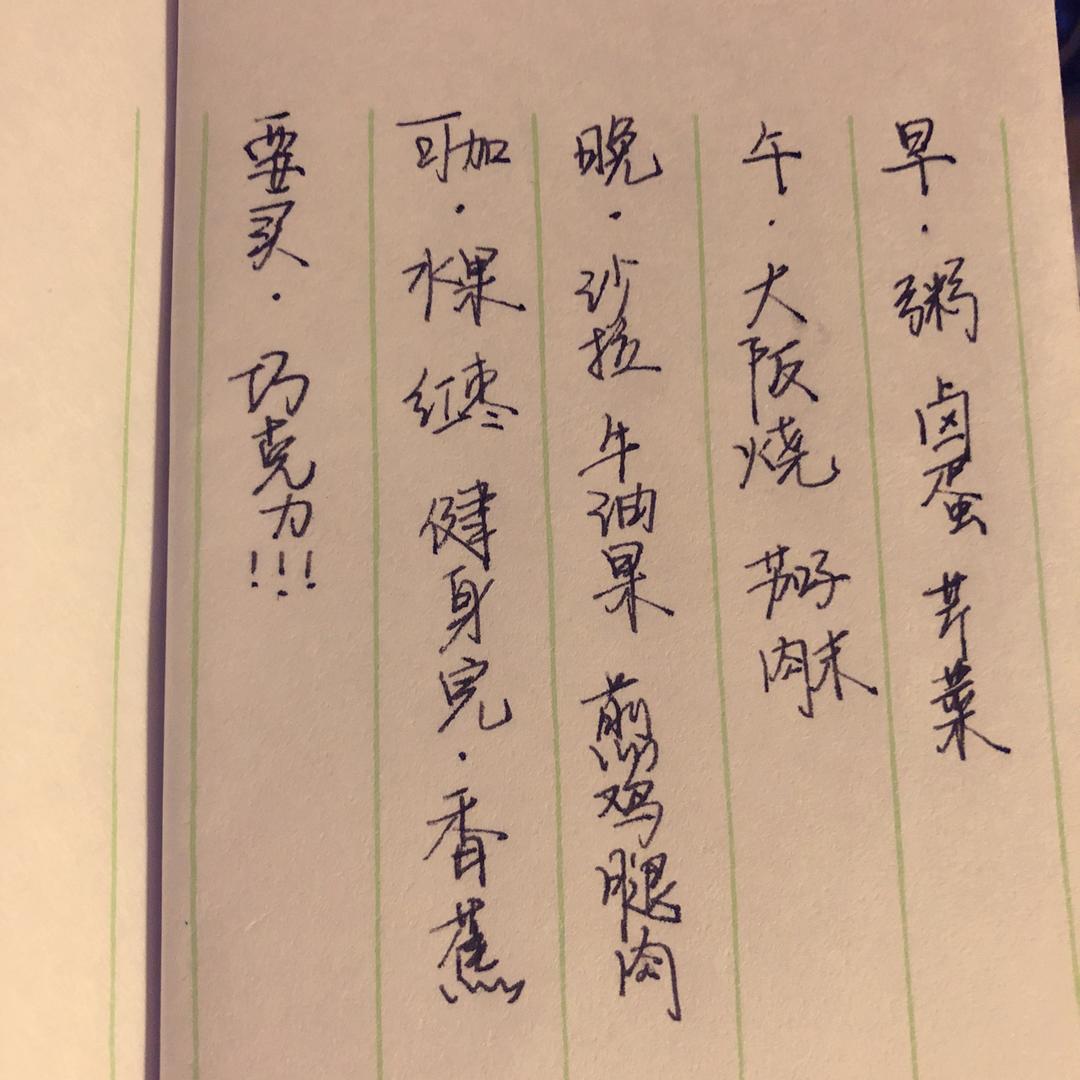 早·粥 卤蛋 芹菜
午·大阪烧 茄子肉末
晚·沙拉 牛油果 煎鸡腿肉
可加·水果 红枣 健身完·香蕉
要买·巧克力!!!